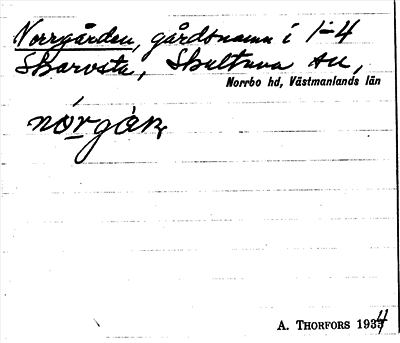 Norrgården, gårdsnamn i 1-4
Skarvsta, Skultuna sn,
Norrbo hd, Västmanlands län
A. Thorfors 1934